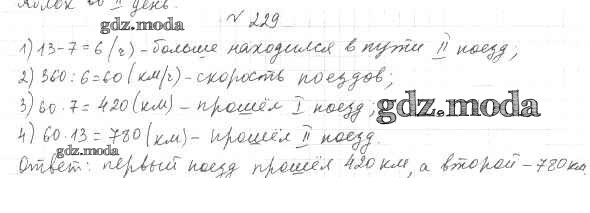 яблок во II день.
gdz.moda
№ 229
1) 13-7=6 (ч) - больше находился в пути II поезд;
2) 360:6=60 (км/ч) - скорость поездов;
3) 60·7=420 (км) - прошёл I поезд;
gdz.moda
4) 60·13=780 (км) - прошёл II поезд.
gdz.moda
Ответ: первый поезд прошёл 420 км, а второй - 780 км.